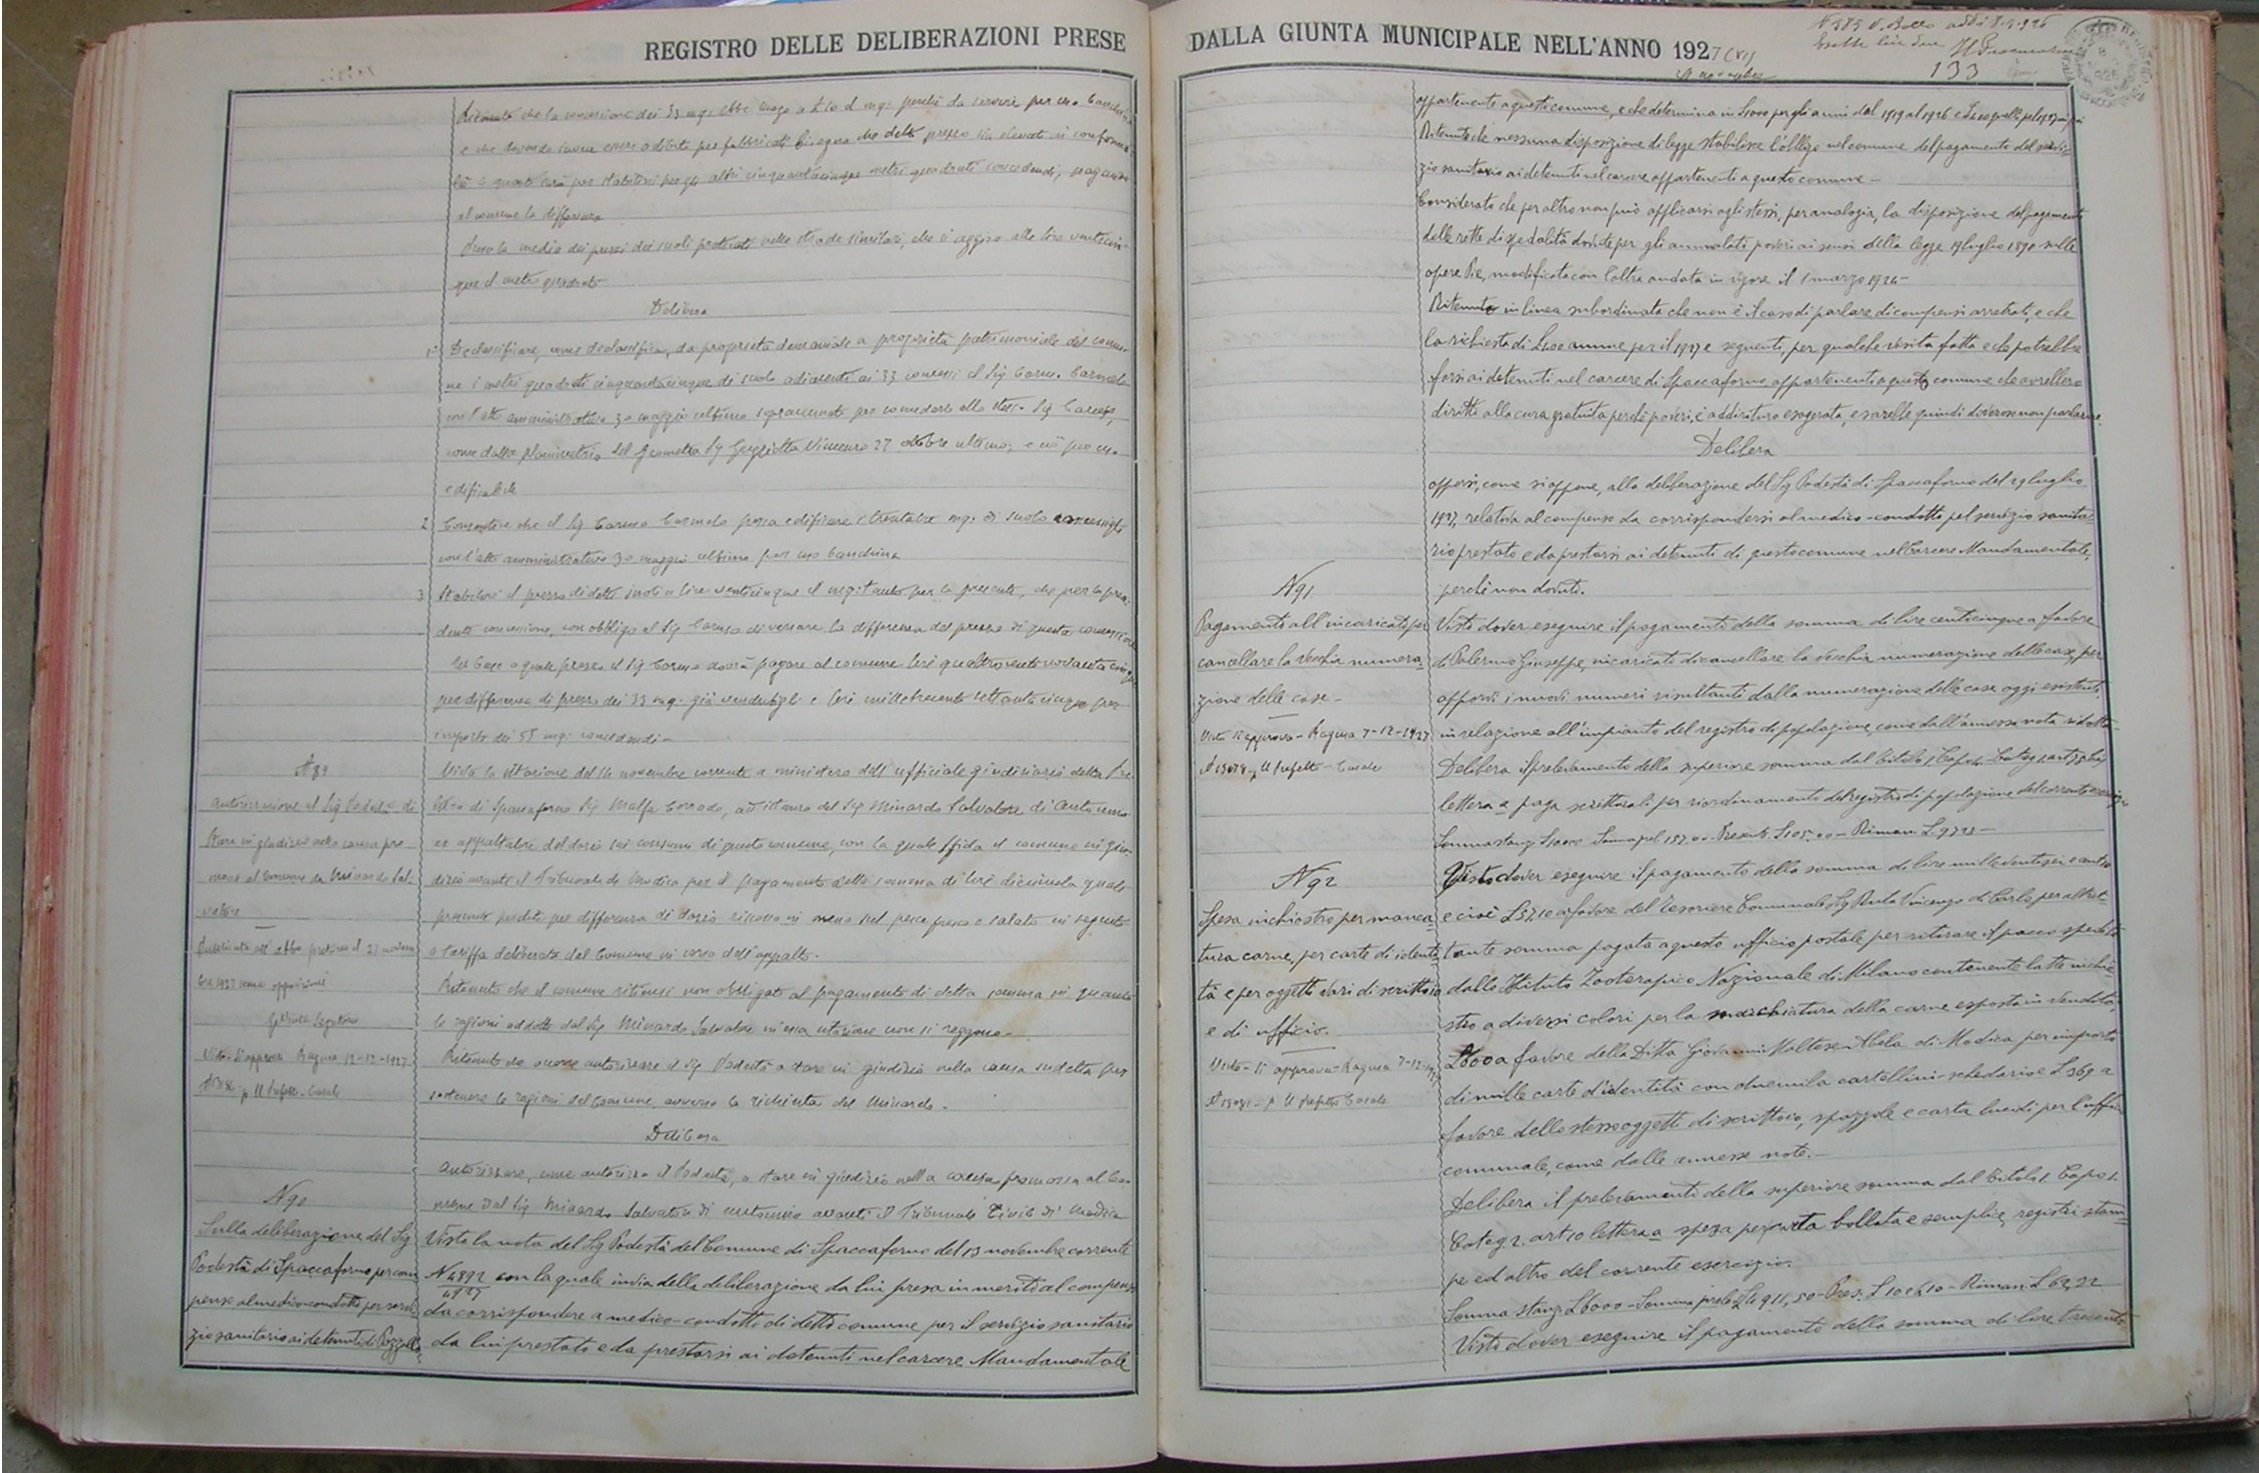 REGISTRO DELLE DELIBERAZIONI PRESE
Ritenuto che la concessione dei 33 mq. ebbe luogo a L. 10 il mq. perchè da servire per uso banchina
e che dovendo invece essere adibito per fabbricati bisogna che detto prezzo sia elevato in conformi-
tà a quanto sarà per stabilirsi per gli altri cinquantacinque metri quadrati concedendi, pagando
al comune la differenza
Visto la media dei prezzi dei suoli praticati nelle strade similari, che si aggira alle lire venticin-
que il metro quadrato
Delibera
1° Declassificare, come declassifica, da proprietà demaniale a proprietà patrimoniale del comu-
ne i metri quadrati cinquantacinque di suolo adiacenti ai 33 concessi al Sig Caruso Carmelo
con l'atto amministrativo 30 maggio ultimo per concederlo allo stesso Sig Caruso,
come dalla planimetria del Geometra Sig Gugliotta Vincenzo 27 ottobre ultimo; e ciò per uso
edificabile
2 Consentire che il Sig Caruso Carmelo possa edificare i trentatre mq. di suolo
con l'atto amministrativo 30 maggio ultimo per uso banchina
3 Stabilire il prezzo di detti suoli a lire venticinque il mq. tanto per la presente, che per la prece-
dente concessione, con obbligo al Sig Caruso di versare la differenza del prezzo di questa concessione
In base a quale prezzo il Sig Caruso dovrà pagare al comune lire quattrocentonovantacinque
per differenza di prezzo dei 33 mq. già vendutigli e lire milletrecentosettantacinque per
importo dei 55 mq. concedendi -
N 89
Autorizzazione al Sig Podestà di
stare in giudizio nella causa pro-
mossa al Comune da Minardo Sal-
vatore
Pubblicata all'albo pretorio il 27 novem
bre 1927 senza opposizioni
Il Segretario
Visto - Si approva Ragusa 12-12-1927
p. Il Prefetto - Casale
Vista la citazione del 14 novembre corrente a ministero dell'ufficiale giudiziario della Pre-
tura di Spaccaforno Sig Malfa Corrado, ad istanza del Sig Minardo Salvatore di Antonino
ex appaltatore del dazio sui consumi di questo comune, con la quale sfida il comune in giu-
dizio avanti il Tribunale di Modica per il pagamento della somma di lire diecimila quali
presunte perdite per differenza di dazio riscosso in meno sul pesce fresco e salato in seguito
a tariffa deliberata dal Comune in corso dell'appalto.
Ritenuto che il comune ritiensi non obbligato al pagamento di detta somma in quanto
le ragioni addotte dal Sig Minardo Salvatore in sua citazione non si reggono -
Ritenuto da autorizzare il Sig Podestà a stare in giudizio nella causa sudetta per
sostenere le ragioni del Comune avverso la richiesta del Minardo.
Delibera
Autorizzare, come autorizza il Podestà, a stare in giudizio nella causa promossa al Co-
mune dal Sig Minardo Salvatore di Antonino avanti il Tribunale Civile di Modica
N 90
Sulla deliberazione del Sig
Podestà di Spaccaforno per com
penso al medico-condotto per servi-
zio sanitario ai detenuti di Pozzallo
Vista la nota del Sig Podestà del Comune di Spaccaforno del 13 novembre corrente
N 4892 con la quale invia della deliberazione da lui presa in merito al compenso
da corrispondere a medico-condotto di detto comune per il servizio sanitario
da lui prestato e da prestarsi ai detenuti nel carcere Mandamentale
DALLA GIUNTA MUNICIPALE NELL'ANNO 1927 (VI)
N 383 V. Bollo addì 8.4.926
Esatte lire due Il Procuratore
133
appartenente a questo comune, e che determina in L 1000 per gli anni dal 1919 al 1926 e L 400 quelle pel 1927 in poi
Ritenuto che nessuna disposizione di legge stabilisce l'obbligo nel comune del pagamento del servi-
zio sanitario ai detenuti nel carcere appartenenti a questo comune -
Considerato che per altro non può applicarsi agli stessi, per analogia, la disposizione del pagamento
delle rette di spedalità dovute per gli ammalati poveri ai sensi della legge 17 luglio 1890 sulle
opere Pie, modificata con l'altra andata in vigore il 1 marzo 1924 -
Ritenuto in linea subordinata che non è il caso di parlare di compensi arretrati, e che
la richiesta di L 400 annue per il 1927 e seguenti, per qualche visita fatta e che potrebbe
farsi ai detenuti nel carcere di Spaccaforno appartenenti a questo comune che avrebbero
diritto alla cura gratuita perchè poveri, è addirittura esagerata, e sarebbe quindi doveroso non parlarne.
Delibera
opporsi, come si oppone, alla deliberazione del Sig Podestà di Spaccaforno del 29 luglio
1927, relativa al compenso da corrispondersi al medico-condotto pel servizio sanita-
rio prestato e da prestarsi ai detenuti di questo comune nel Carcere Mandamentale,
perchè non dovuto.
N 91
Pagamento all'incaricato per
cancellare la vecchia numera-
zione delle case -
Visto si approva - Ragusa 7-12-1927
N 13078 p. Il Prefetto - Casale
Visto dover eseguire il pagamento della somma di lire centocinque a favore
di Palermo Giuseppe, incaricato di cancellare la vecchia numerazione delle case, per
apporvi i nuovi numeri risultanti dalla numerazione delle case oggi esistenti,
in relazione all'impianto del registro di popolazione, come dall'annessa nota vistata
Delibera il prelevamento della superiore somma dal titolo 1 Capo 1
lettera a paga scritturali per riordinamento del registro di popolazione del corrente esercizio
Somma stanz. L 10000 Somma prel. 157.00 - Presente L 105.00 - Riman. L 9738 -
N 92
Spesa inchiostro per marca-
tura carne, per carte di identi-
tà e per oggetti vari di scrittoio
e di ufficio.
Visto - Si approva - Ragusa 7-12-927
p. Il Prefetto Casale
Visto dover eseguire il pagamento della somma di lire milleventisei e cent. 10
e cioè L 57,10 a favore del Tesoriere Comunale Sig Vincenzo di Carlo per altret-
tante somma pagata a questo ufficio postale per ritirare il pacco spedito
dallo Istituto Zooterapico Nazionale di Milano contenente latte inchio-
stro a diversi colori per la marchiatura della carne esposta in vendita,
L 600 a favore della Ditta Giovanni Maltese Abela di Modica per importo
di mille carte d'identità con duemila cartellini-schedario e L 369 a
favore dello stesso oggetti di scrittoio, spazzole e carta lucidi per l'ufficio
comunale, come dalle annesse note. -
Delibera il prelevamento della superiore somma dal titolo 1. Capo 1.
Categ 2. art 10 lettera a spesa per carta bollata e semplice, registri stam-
pe ed altro del corrente esercizio.
Somma stanz. L 6000 - Somma prelev. L 4911,50 - Pres. L 1026,10 - Riman. L 62,22
Visto dover eseguire il pagamento della somma di lire trecento